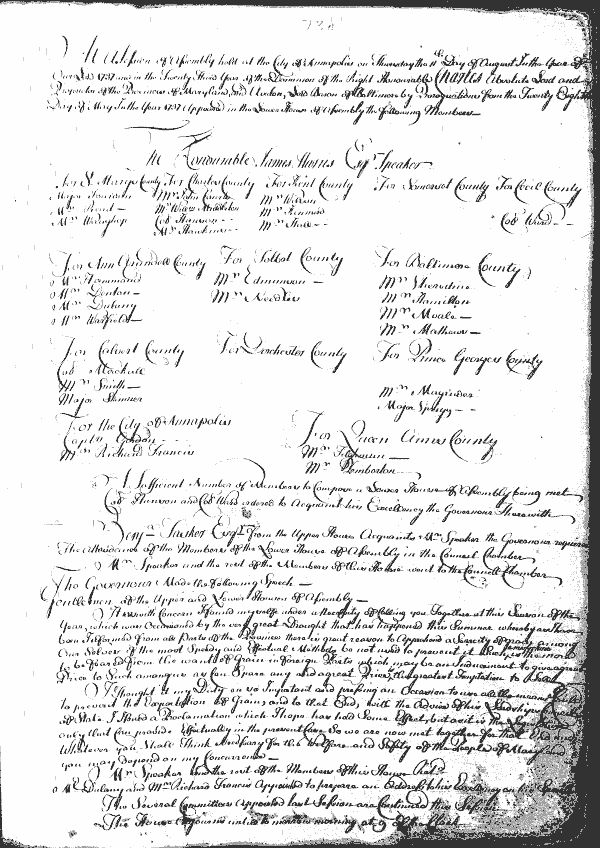 At a Session of Assembly held at the City of Annapolis on Thursday the 11th Day of August In the Year of
Our Lord 1737 and in the Twenty Third Year of the Dominion of the Right Honourable Charles Absolute Lord and
Proprietor of the Provinces of Maryland and Avalon, Lord Baron of Baltimore by Prorogations from the Twenty Eighth
Day of May In the Year 1737 Appeared in the Lower House of Assembly the following Members
The Honourable James Harris Esqr. Speaker
For St. Marys County For Charles County For Kent County For Somerset County For Cecil County
Major
Mr. Read Mr. Wilson
Col. Hanson Col. Ward
Mr. Hawkins Mr. Hall
For Ann Arundell County For Talbot County For Baltimore County
Mr. Hammond Mr. Edmunson Mr. Sheredine
Mr. Denton Mr. Needles Mr. Hamilton
Mr. Dulany Mr. Moale
Mr. Warfield Mr. Mathews
For Calvert County For Dorchester County For Prince Georges County
Col. Mackall
Mr. Smith Mr. Magruder
Major Skinner Major Sprigg
For the City of Annapolis For Queen Annes County
Captn. Gordon
Mr. Richard Francis Mr. Pemberton
A Sufficient Number of Members to Compose a Lower House of Assembly being met
Col. Hanson and Col. Ward ordered to Acquaint his Excellency the Governour Therewith
Benjn. Tasker Esqr. from the Upper House Acquaints Mr. Speaker the Governour requires
The Attendance of the Members of the Lower House of Assembly in the Councel Chamber
Mr. Speaker and the rest of the Members of the House went to the Councill Chamber
The Governour Made the following Speech
Gentlemen of the Upper and Lower Houses of Assembly
It is with Concern I found myself under a Necessity of Calling you Together at this Season of the
Year, which was Occasioned by the very great Drought that has happened this Summer whereby as I have
been Informed from all Parts of the Province there is great reason to Apprehend a Scarcity of among
Our Selves if the most Speedy and Effectual Methods be not used to prevent it
to be feared from the want of Grain in Foreign Parts which may be an Inducement to give a great
Price to Such amongst us as can Spare any and a great Price the greatest Temptation to
I thought it my Duty on so Important and pressing an Occasion to use all the means
to prevent the Exportation of Grain, and to that End, with the Advice of his Lordships
of State I Issued a Proclamation which I hope has had Some Effect, but as it is the
only that can produce Effectually in the present Case So we are now met together for that
Whatever you Shall Think Necessary for the Welfare and Safety of the People of Maryland
you may depend on my Concurrence
Mr. Speaker and the rest of the Members of the House Retd.
Mr. Dulany and Mr. Richard Francis Appointed to prepare an Address to his Excellency on his Speech
The Several Committees Appointed last Session are Continued this Session
The House Adjourns untill to morrow morning at 9 of the Clock